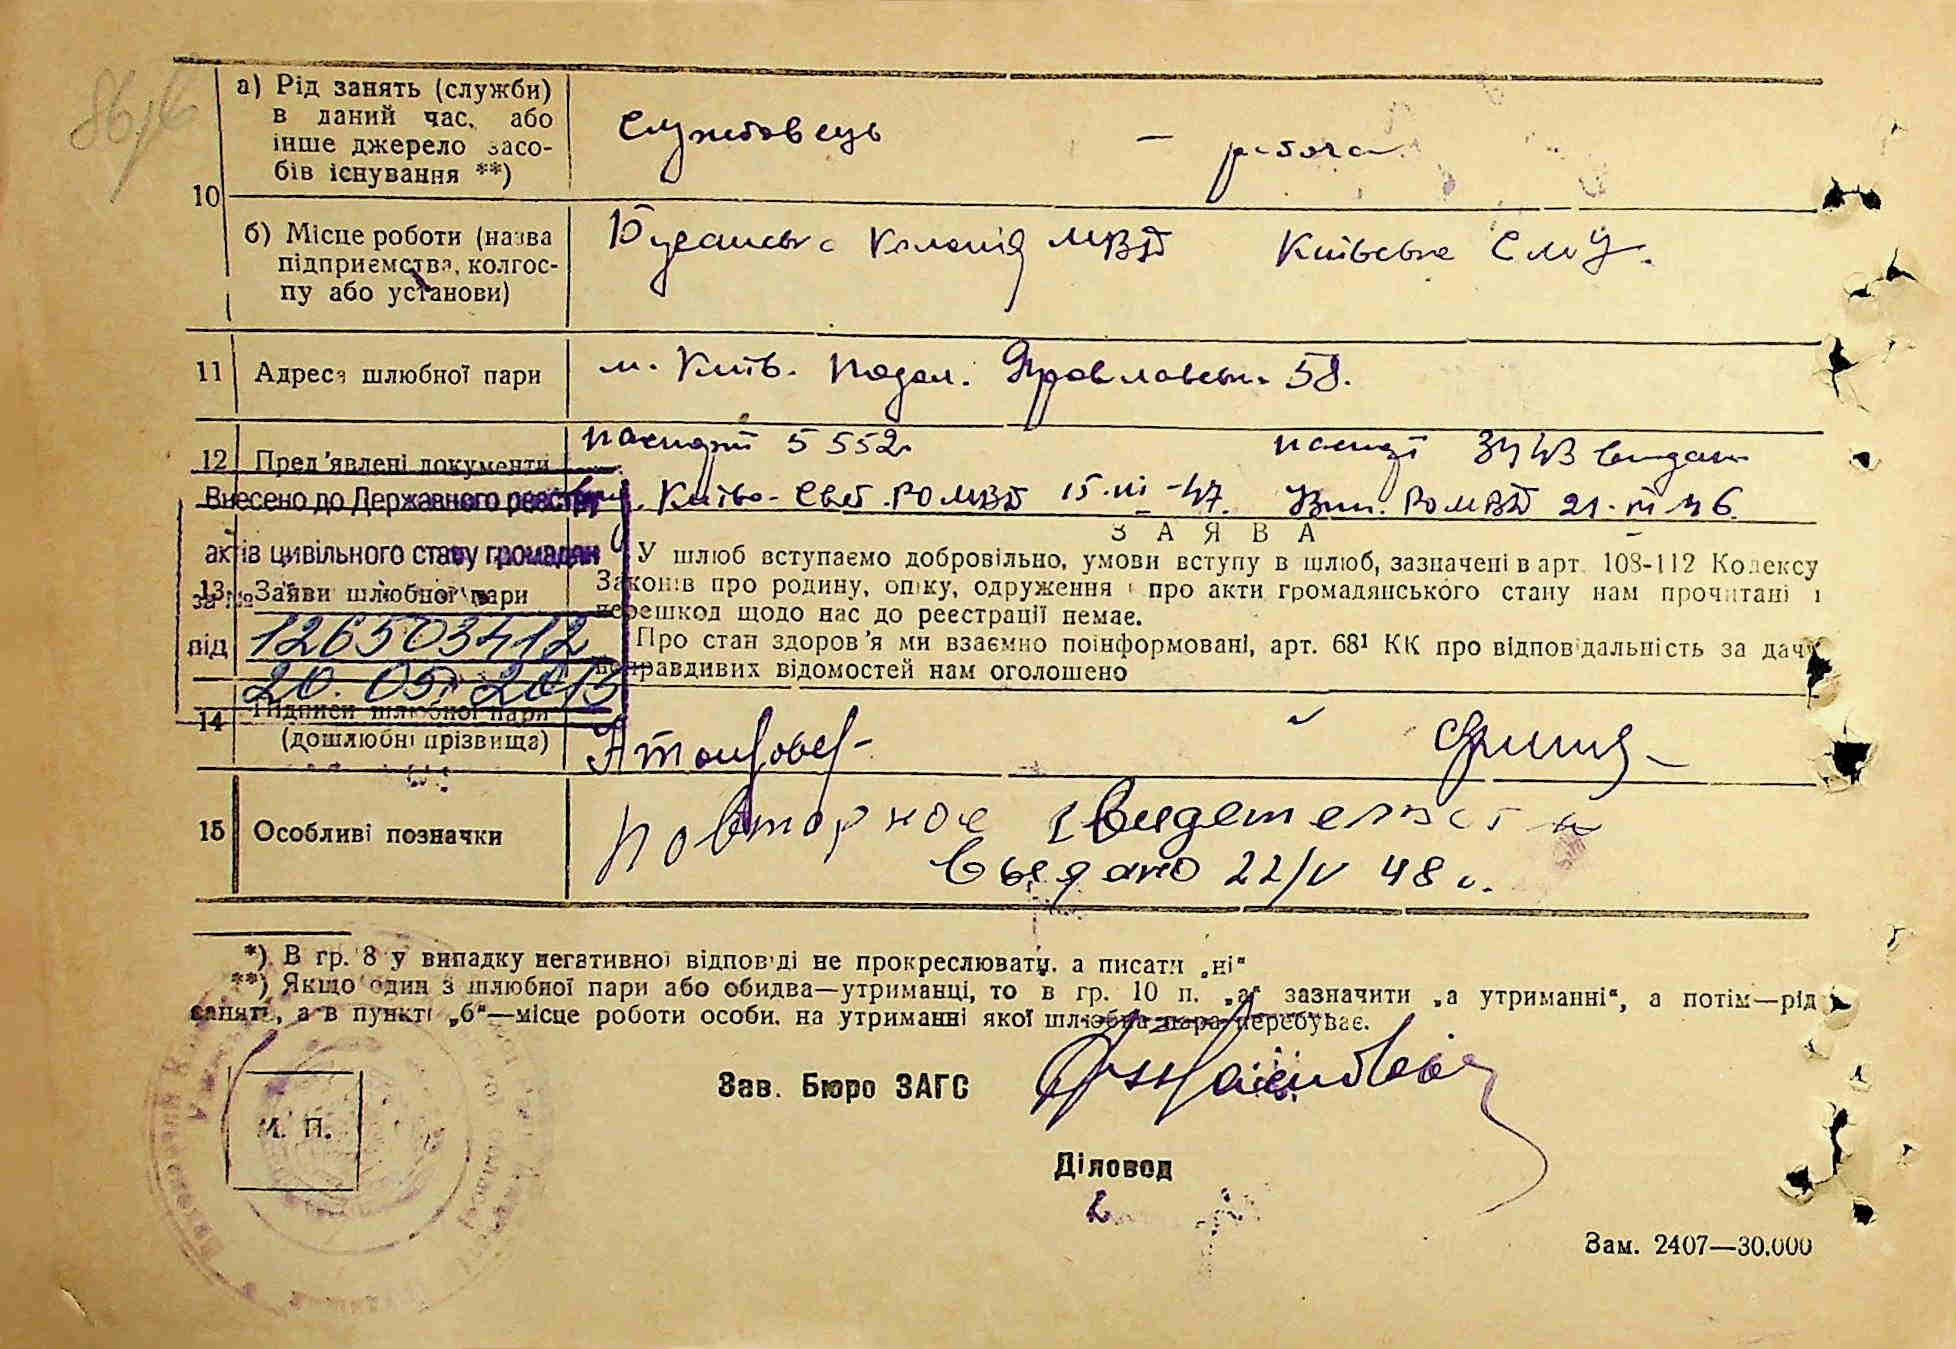 10
а) Рід занять (служби)
в даний час, або
інше джерело засо-
бів існування **)
службовець — робоча
б) Місце роботи (назва
підприємства, колгос-
пу або установи)
колонія МВД Київське СМУ.
11 Адреса шлюбної пари
м. Київ. Подол. 58.
12 Пред'явлені документи
паспорт 5552
паспорт 3443 видан
Києво-Свят. РОМВД 15.III-47. РОМВД 21.III 46
Внесено до Державного реєстру
актів цивільного стану громадян
за №
126503412
від 20. 05. 2015
13 Заяви шлюбної пари
ЗАЯВА
У шлюб вступаємо добровільно, умови вступу в шлюб, зазначені в арт. 108-112 Кодексу
Законів про родину, опіку, одруження і про акти громадянського стану нам прочитані і
перешкод щодо нас до реестрації немає.
Про стан здоров'я ми взаємно поінформовані, арт. 68¹ КК про відповідальність за дачу
неправдивих відомостей нам оголошено
14 Підписи шлюбної пари
(дошлюбні прізвища)
15 Особливі позначки
Повторное свидетельст
выдано 22/V 48 г.
*) В гр. 8 у випадку негативної відповіді не прокреслювати, а писати „ні“
**) Якщо один з шлюбної пари або обидва—утриманці, то в гр. 10 п. „а“ зазначити „а утриманні“, а потім—рід
занять, а в пункті „б“—місце роботи особи, на утриманні якої шлюбна пара перебуває.
М. П.
Зав. Бюро ЗАГС
Діловод
Зам. 2407—30.000